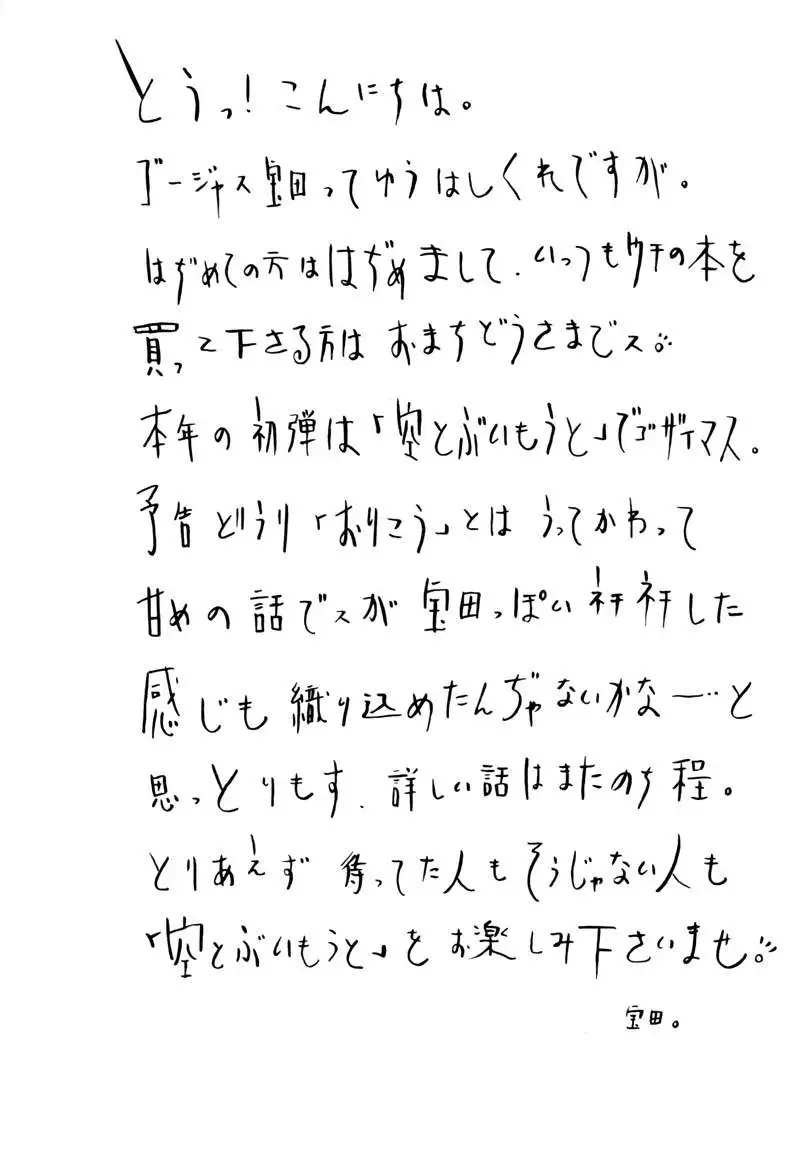 とうっ！こんにちは。
ゴージャス宝田ってゆうはしくれですが。
はぢめての方ははぢめまして、いっつもウチの本を
買って下さる方はおまちどうさまでス。
本年の初弾は「空とぶいもうと」でゴザイマス。
予告どうり「おりこう」とはうってかわって
甘めの話でスが宝田っぽいネチネチした
感じも織り込めたんぢゃないかなー…と
思っとりもす、詳しい話はまたのち程。
とりあえず待ってた人もそうじゃない人も
「空とぶいもうと」をお楽しみ下さいませ。
宝田。